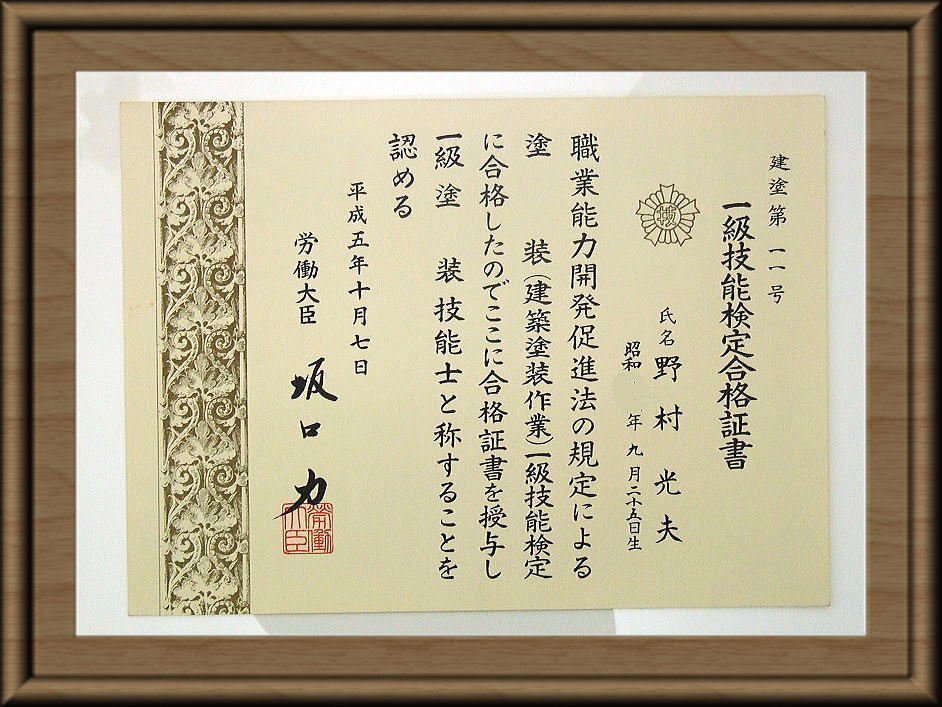 建塗第一一号
一級技能検定合格証書
技
氏名 野村光夫
昭和 年九月二十五日生
職業能力開発促進法の規定による
塗装(建築塗装作業)一級技能検定
に合格したのでここに合格証書を授与し
一級塗装技能士と称することを
認める
平成五年十月七日
労働大臣 坂口力
労働大臣